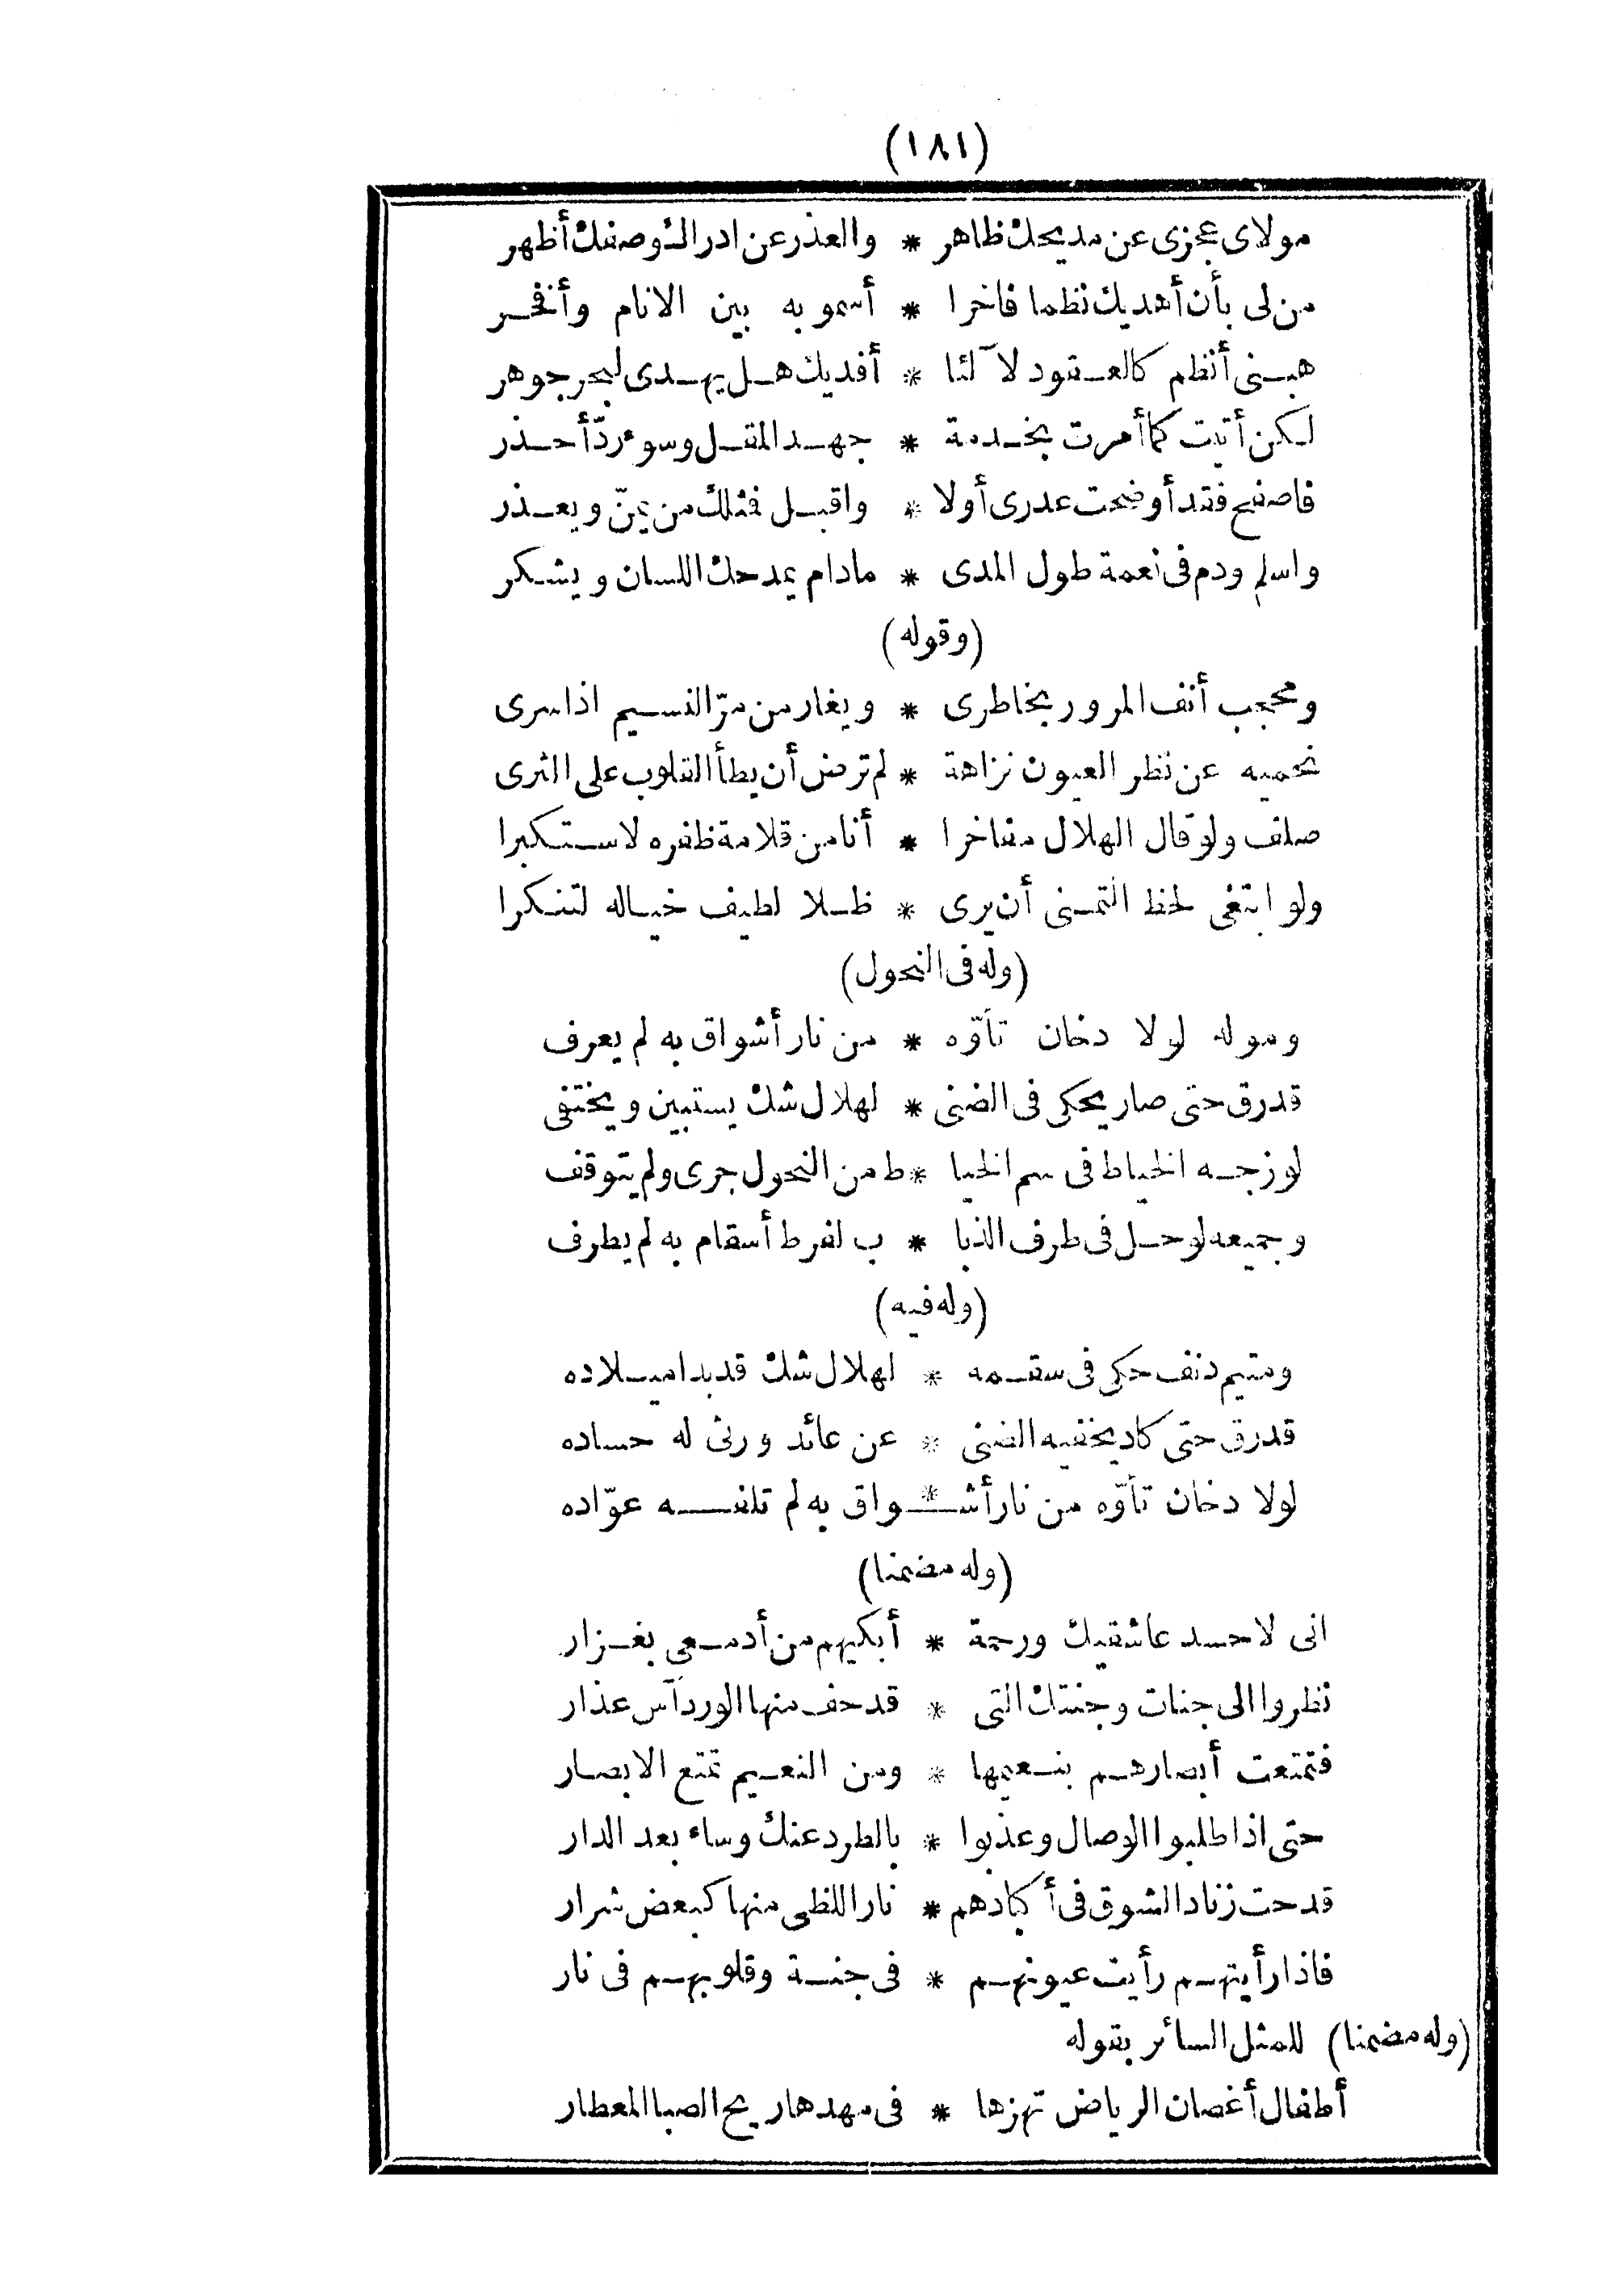 (١٨١)
مولاى عجزى عن مديحك ظاهر * والعذر عن ادراك وصفك أظهر
من لى بأن أهديك نظما فاخرا * أسمو به بين الانام وأفخر
هبنى أنظم كالعقود لآلئا * أفديك هل يهدى لبحر جوهر
لكن أتيت كما أمرت بخدمة * جهد المقل وسوء ردّ أحذر
فاصفح فقد أوضحت عدرى أولا * واقبل فمثلك من يمنّ ويعذر
واسلم ودم فى نعمة طول المدى * مادام يمدحك اللسان ويشكر
(وقوله)
ومحجب أنف المرور بخاطرى * ويغار من مرّ النسيم اذا سرى
نحميه عن نظر العيون نزاهة * لم ترض أن يطأ القلوب على الثرى
صلف ولو قال الهلال مفاخرا * أنا من قلامة ظفره لاستكبرا
ولو ابتغى لحظ التمنى أن يرى * ظلا لطيف خياله لتنكرا
(وله فى النحول)
وموله لولا دخان تأوّه * من نار أشواق به لم يعرف
قد رق حتى صار يحكى فى الضنى * لهلال شك يستبين ويختفى
لو زجه الخياط فى سم الخيا * ط من النحول جرى ولم يتوقف
وجميعه لو حل فى طرف الذبا * ب لفرط أسقام به لم يطرف
(وله فيه)
ومتيم دنف حكى فى سقمه * لهلال شك قد بدا ميلاده
قد رق حتى كاد يخفيه الضنى * عن عائد ورثى له حساده
لولا دخان تأوّه من نار أشـ * ـواق به لم تلفه عوّاده
(وله مضمنا)
انى لاحسد عاشقيك ورحمة * أبكيهم من أدمعى بغزار
نظروا الى جنات وجنتك التى * قد حف منها الورد آس عذار
فتمتعت أبصارهم بنعيمها * ومن النعيم تمتع الابصار
حتى اذا طلبوا الوصال وعذبوا * بالطرد عنك وساء بعد الدار
قدحت زناد الشوق فى أكبادهم * نارا للظى منها كبعض شرار
فاذا رأيتهم رأيت عيونهم * فى جنة وقلوبهم فى نار
(وله مضمنا) للمثل السائر بقوله
أطفال أغصان الرياض تهزها * فى مهدها ريح الصبا المعطار